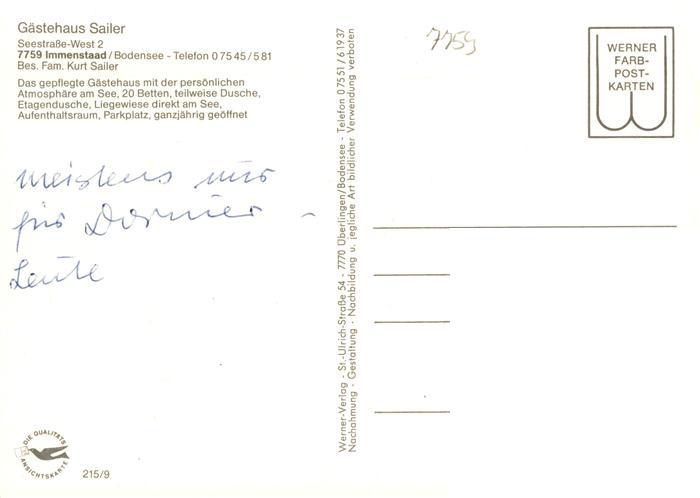 Gästehaus Sailer
Seestraße-West 2
7759 Immenstaad/Bodensee - Telefon 07545/581
Bes. Fam. Kurt Sailer
Das gepflegte Gästehaus mit der persönlichen
Atmosphäre am See, 20 Betten, teilweise Dusche,
Etagendusche, Liegewiese direkt am See,
Aufenthaltsraum, Parkplatz, ganzjährig geöffnet
meistens nur
für Dornier -
Leute
DIE QUALITÄTS
ANSICHTSKARTE
215/9
Werner-Verlag - St.-Ulrich-Straße 54 - 7770 Überlingen/Bodensee - Telefon 07551/61937
Nachahmung - Gestaltung - Nachbildung u. jegliche Art bildlicher Verwendung verboten
7759
WERNER
FARB-
POST-
KARTEN